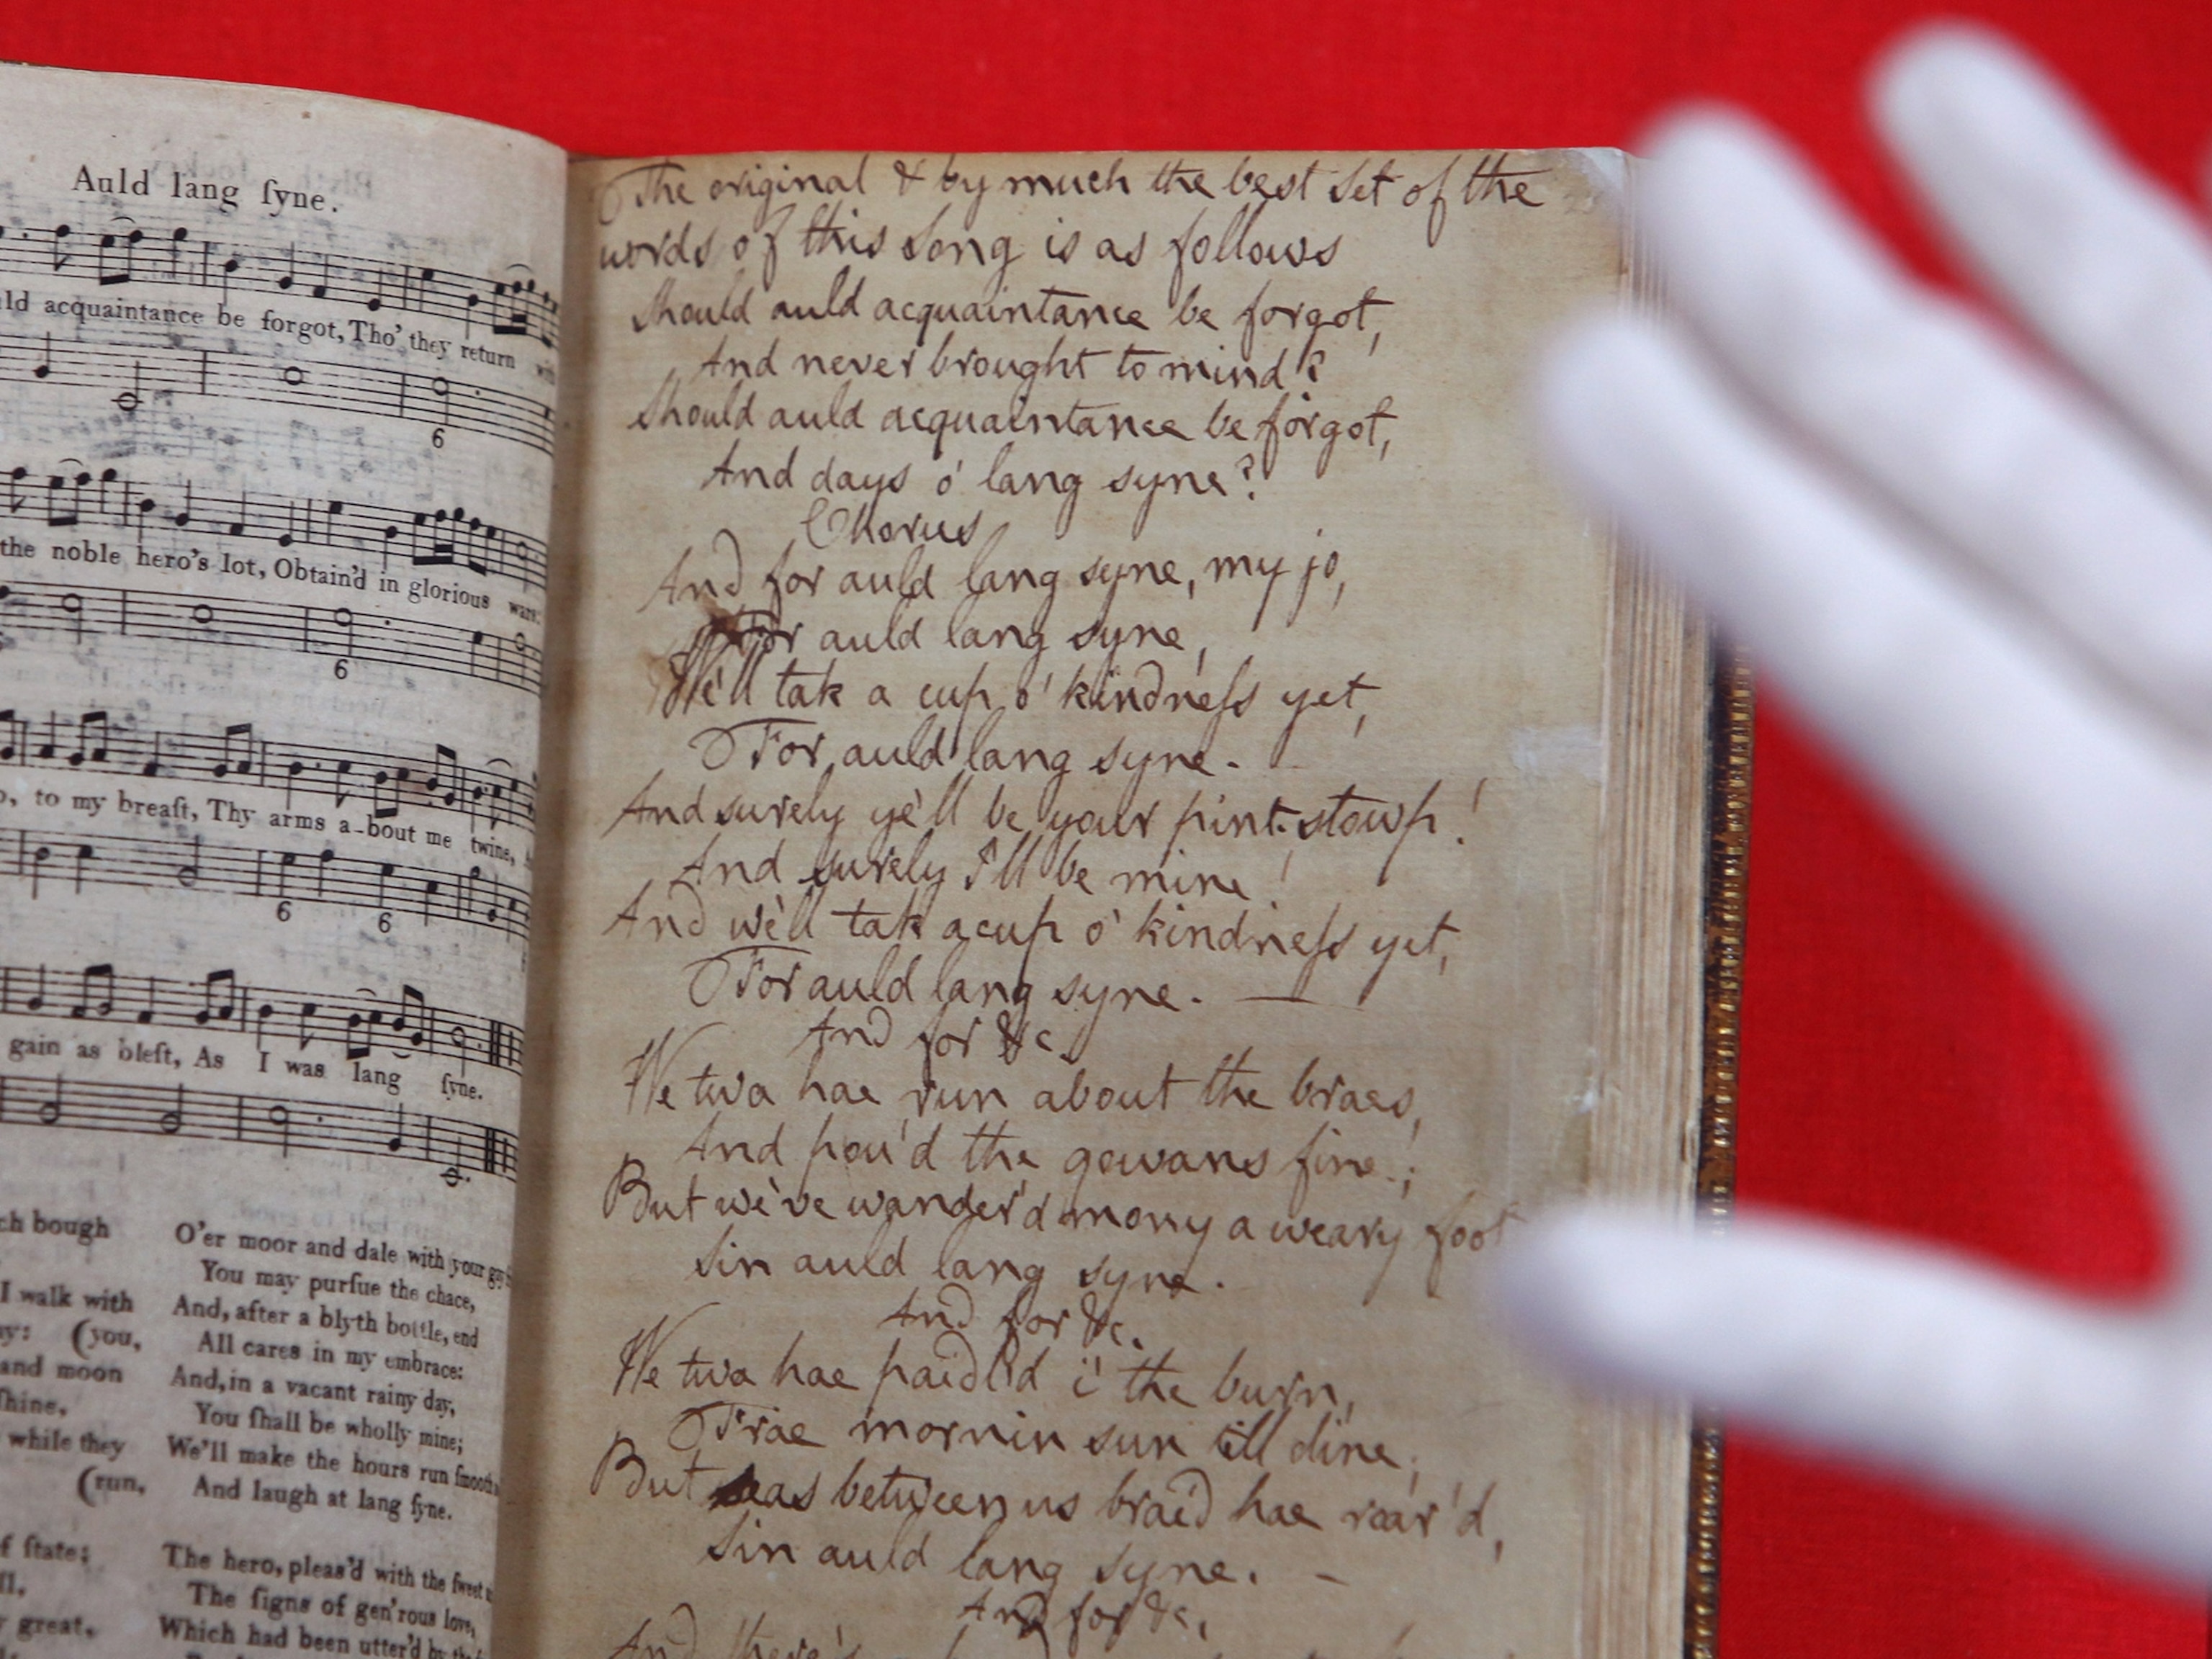 Auld lang ſyne.
acquaintance be forgot, Tho' they return
the noble hero's lot, Obtain'd in glorious wars:
to my breaſt, Thy arms a-bout me twine,
gain as bleſt, As I was lang ſyne.
bough
I walk with
(you,
and moon
ſhine,
while they
(run,
ſtate;
great,
O'er moor and dale with your
You may purſue the chace,
And, after a blyth bottle, end
All cares in my embrace:
And, in a vacant rainy day,
You ſhall be wholly mine;
We'll make the hours run ſmooth
And laugh at lang ſyne.
The hero, pleas'd with the ſweet
The ſigns of gen'rous love,
Which had been utter'd by
The original & by much the best set of the
words of this song is as follows
Should auld acquaintance be forgot,
And never brought to mind?
Should auld acquaintance be forgot,
And days o' lang syne?
Chorus
And for auld lang syne, my jo,
For auld lang syne,
We'll tak a cup o' kindneſs yet,
For auld lang syne.
And surely ye'll be your pint-stowp!
And surely I'll be mine!
And we'll tak a cup o' kindneſs yet,
For auld lang syne. —
And for &c.
We twa hae run about the braes,
And pou'd the gowans fine;
But we've wander'd mony a weary foot
Sin auld lang syne.
And for &c.
We twa hae paidl'd i' the burn,
Frae mornin sun till dine;
But seas between us braid hae roar'd,
Sin auld lang syne. —
And for &c.
And there's